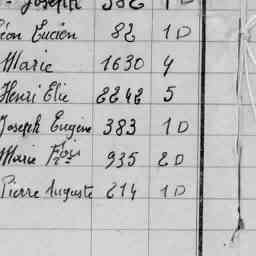 Joseph 382 1D
Léon Lucien 82 1D
Marie 1630 4
Henri Elie 2242 5
Joseph Eugène 383 1D
Marie 935 2D
Pierre Auguste 214 1D